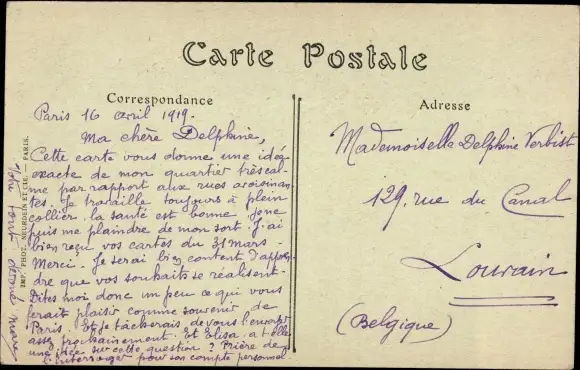 Carte Postale
Correspondance
Paris 16 avril 1919.
Ma chère Delphine,
Cette carte vous donne une idée
exacte de mon quartier
me par rapport aux rues avoisinan-
tes. Je travaille toujours à plein
collier. la santé est bonne, je ne
puis me plaindre de mon sort. J'ai
bien reçu vos cartes du 31 mars -
Merci. Je serai bien content d'appren-
dre que vos souhaits se réalisent.
Dites moi donc un peu ce qui vous
ferait plaisir comme souvenir de
Paris. Et je tâcherais de vous l'envoyer
assez prochainement. Et Elisa a t elle
une idée sur cette question ? Prière de
l'interroger pour son compte personnel
IMP. PHOT. NEURDEIN ET CIE. — PARIS.
Adresse
Mademoiselle Delphine Verbist
129, rue du Canal
Louvain
(Belgique)